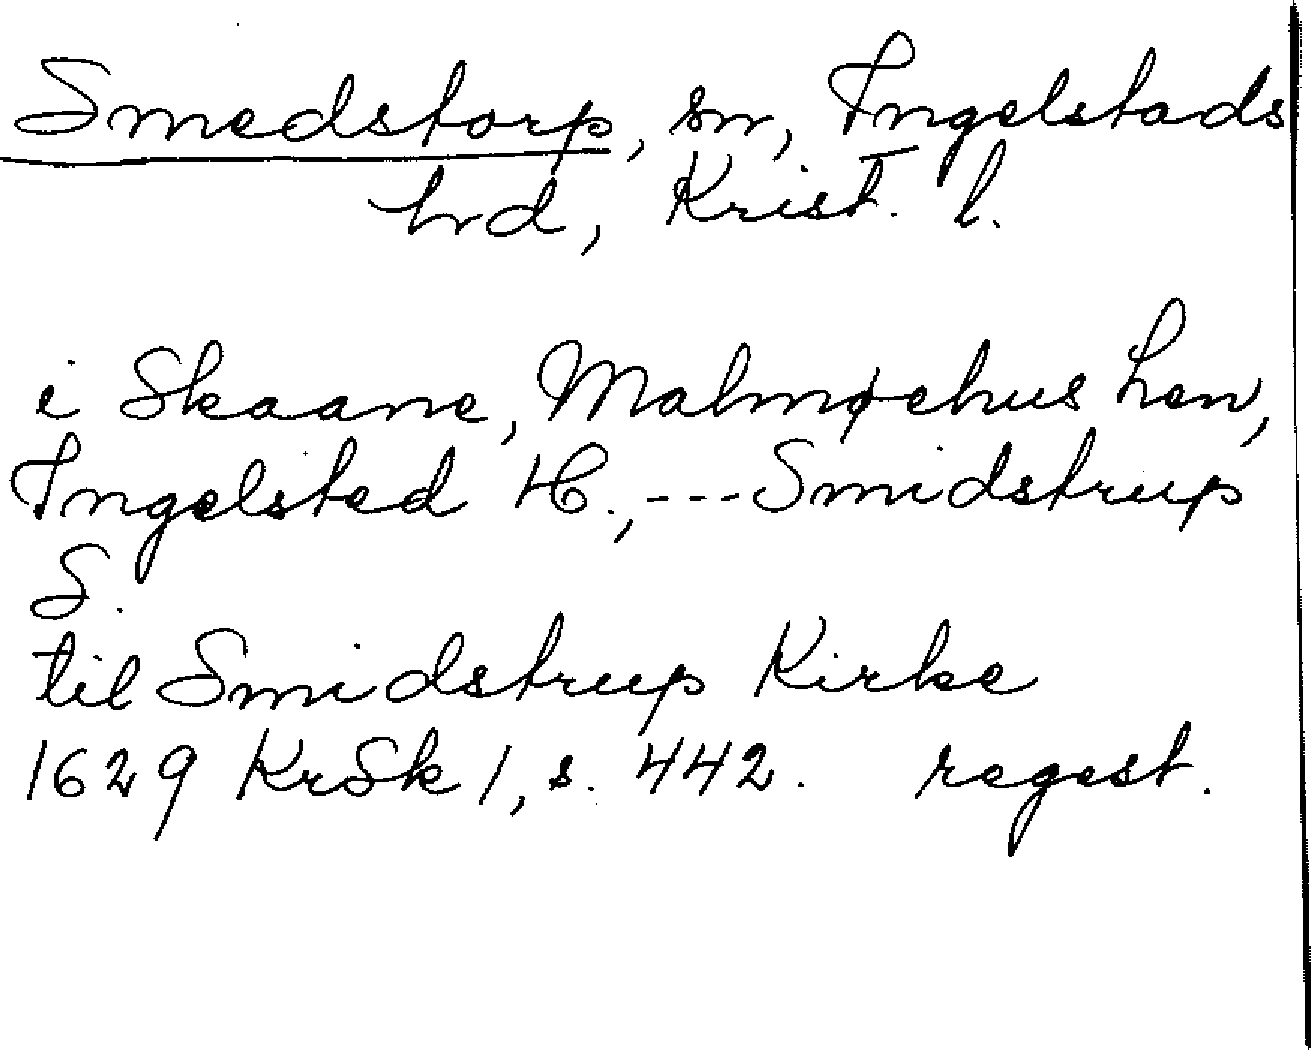 Smedstorp, sn, Ingelstads
hrd, Krist. l.
i Skaane, Malmøehus Len,
Ingelsted H., --- Smidstrup
S.
til Smidstrup Kirke
1629 KrSk 1, s. 442. regest.